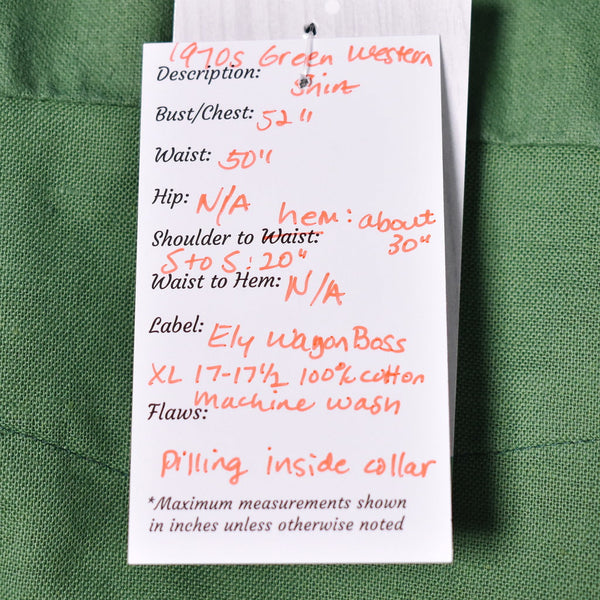 1970s Green Western
Description: Shirt
Bust/Chest: 52"
Waist: 50"
Hip: N/A
hem: about
Shoulder to Waist: 30"
S to S: 20"
Waist to Hem: N/A
Label: Ely Wagon Boss
XL 17-17½ 100% cotton
Machine wash
Flaws:
Pilling inside collar
*Maximum measurements shown
in inches unless otherwise noted